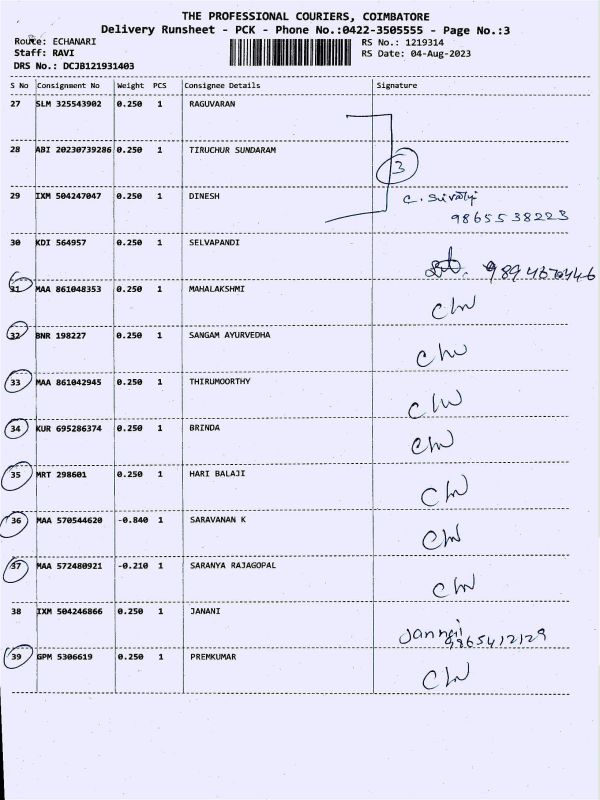 THE PROFESSIONAL COURIERS, COIMBATORE
Delivery Runsheet - PCK - Phone No.:0422-3505555 - Page No.:3
Route: ECHANARI RS No.: 1219314
Staff: RAVI RS Date: 04-Aug-2023
DRS No.: DCJB121931403
S No Consignment No Weight PCS Consignee Details Signature
27 SLM 325543902 0.250 1 RAGUVARAN
28 ABI 20230739286 0.250 1 TIRUCHUR SUNDARAM
3
29 IXM 504247047 0.250 1 DINESH
9865538223
30 KDI 564957 0.250 1 SELVAPANDI
31 MAA 861048353 0.250 1 MAHALAKSHMI
32 BNR 198227 0.250 1 SANGAM AYURVEDHA
33 MAA 861042945 0.250 1 THIRUMOORTHY
34 KUR 695286374 0.250 1 BRINDA
35 MRT 298601 0.250 1 HARI BALAJI
36 MAA 570544620 -0.840 1 SARAVANAN K
37 MAA 572480921 -0.210 1 SARANYA RAJAGOPAL
38 IXM 504246866 0.250 1 JANANI
9865412129
39 GPM 5306619 0.250 1 PREMKUMAR